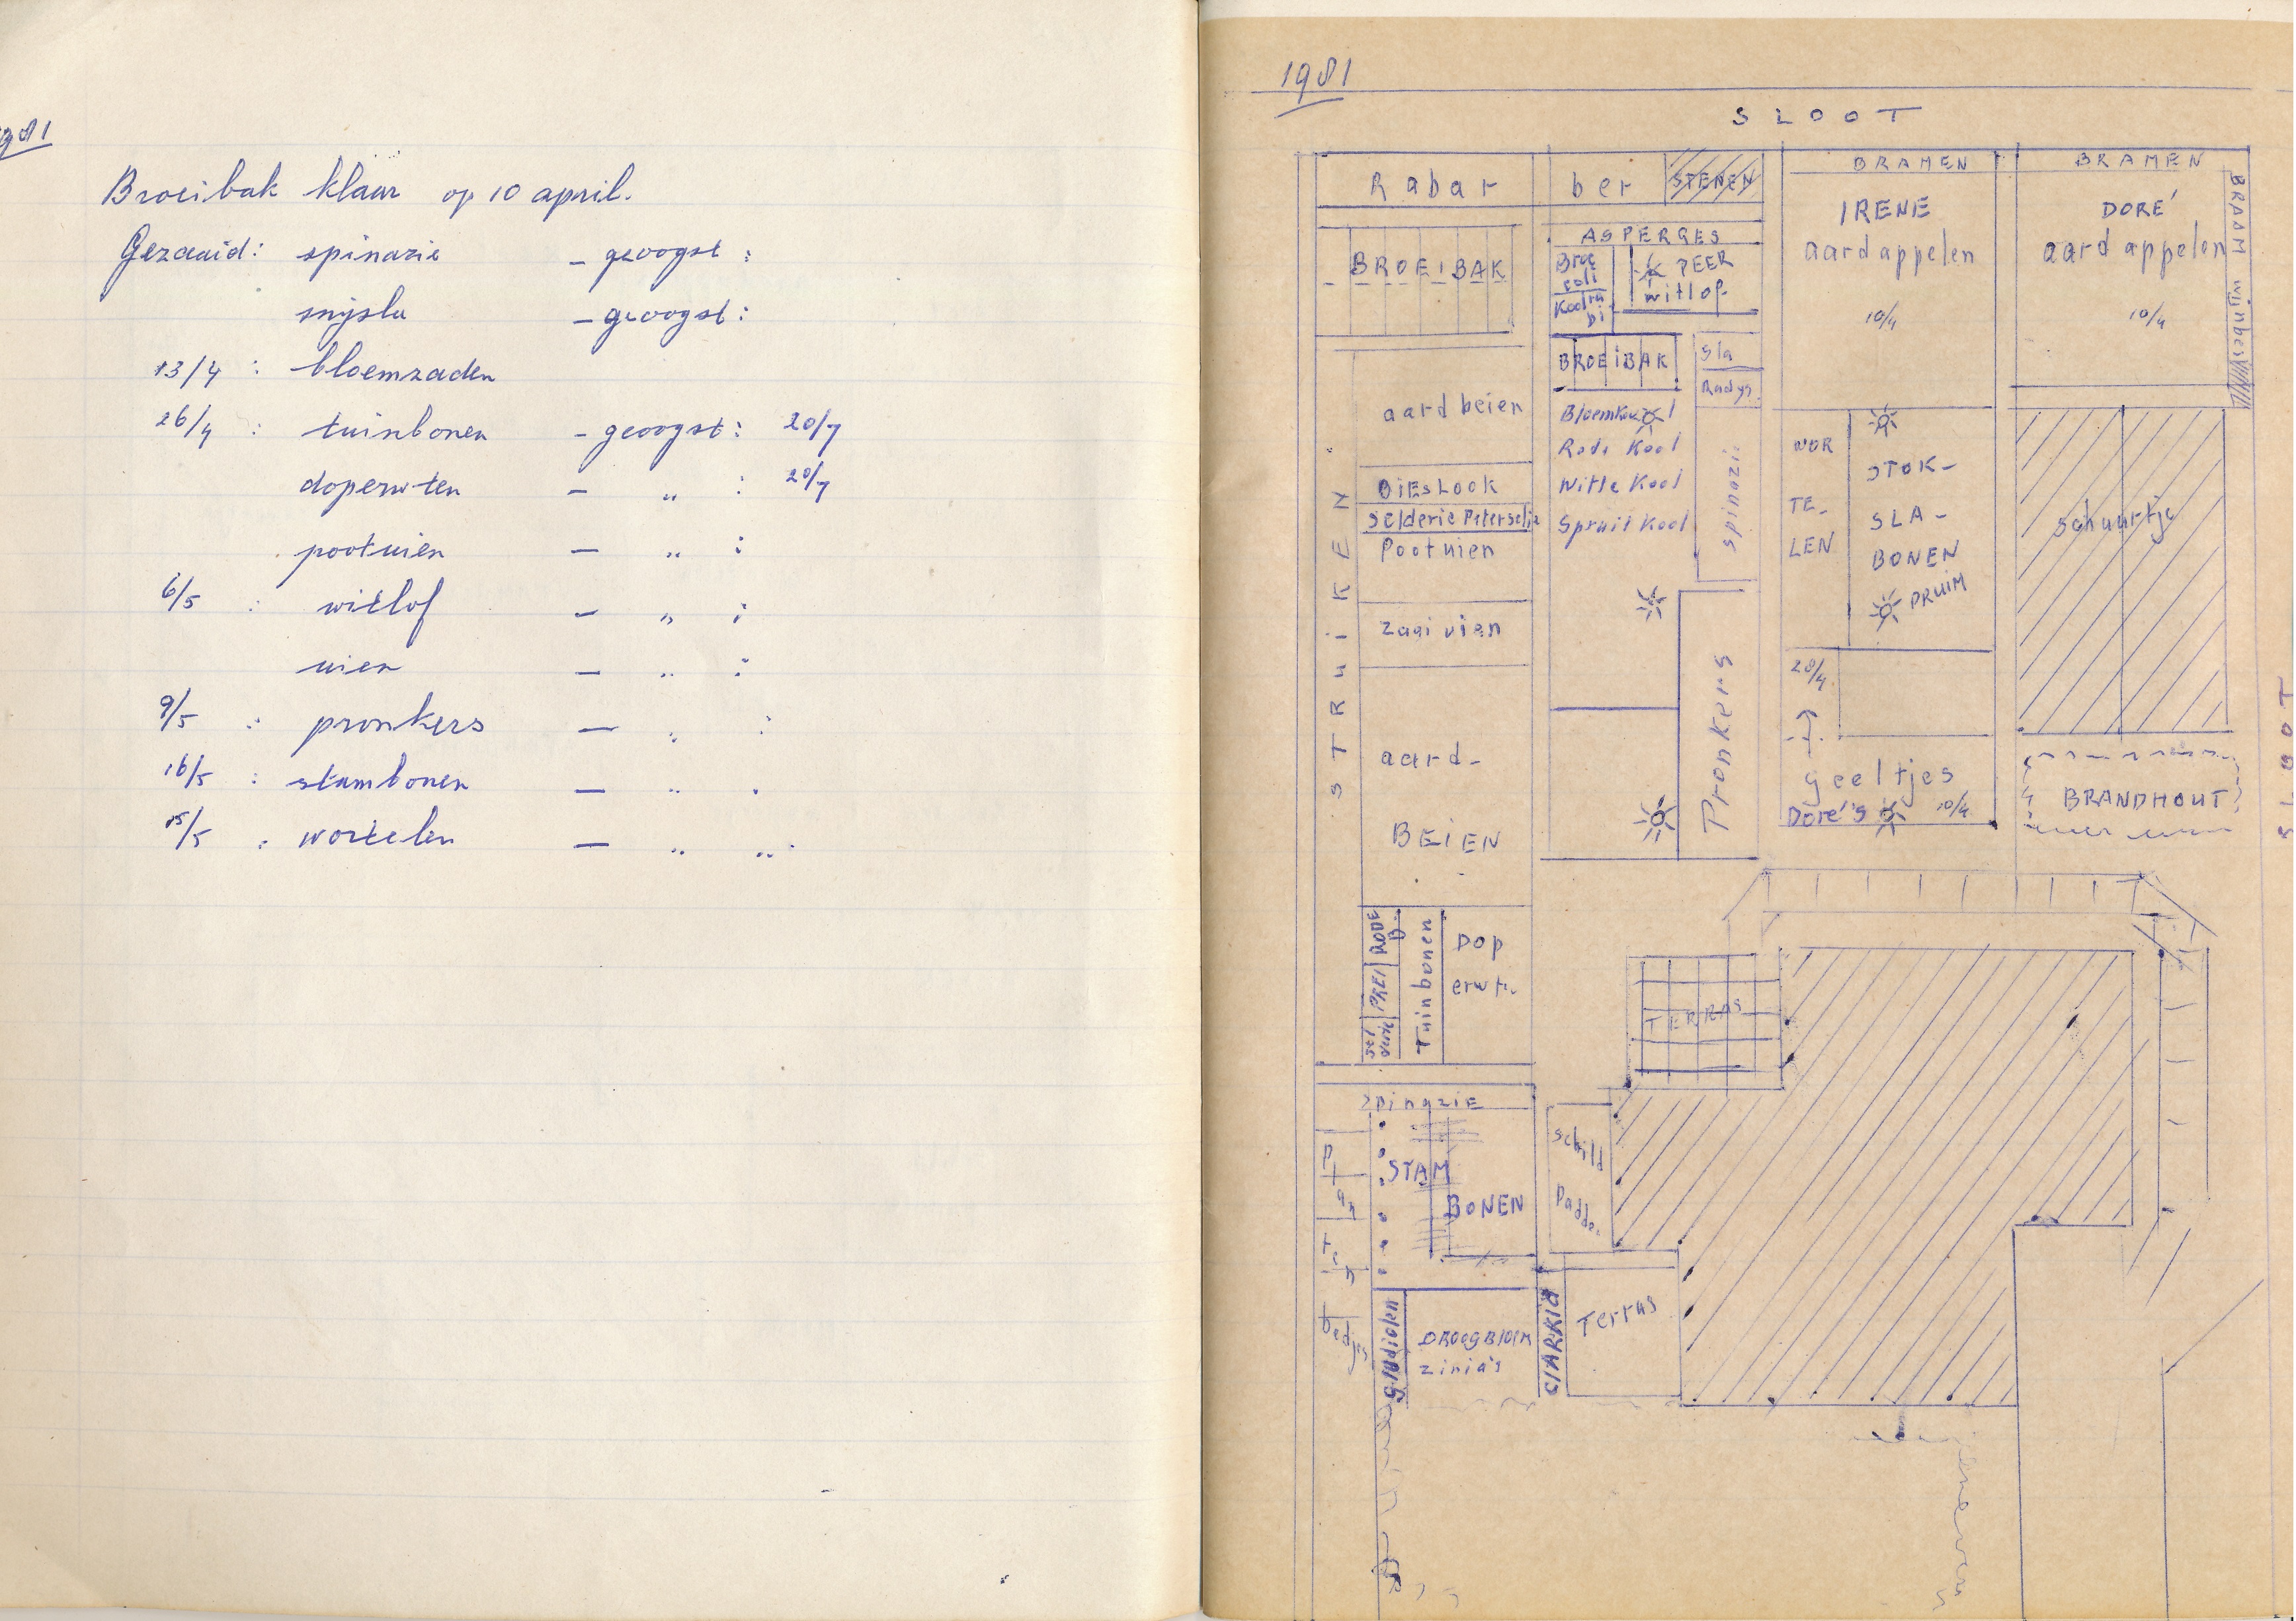 1981
Broeibak klaar op 10 april.
Gezaaid: spinazie – geoogst :
snijsla – geoogst :
13/4 : bloemzaden
26/4 : tuinbonen – geoogst : 20/7
doperwten – „ : 20/7
pootuien – „ :
6/5 : witlof – „ :
uien – „ :
9/5 : pronkers – „ :
16/5 : stambonen – „ .
15/5 : wortelen – „ „
1981
SLOOT
Rabar ber
STENEN
BRAMEN
BRAMEN
IRENE
aardappelen
10/4
DORÉ
aardappelen
10/4
BRAAM wijnbes
BROEIBAK
ASPERGES
Broc
coli
Kool ra
bi
PEER
witlof
BROEIBAK
Sla
Radys
STRUIKEN
aardbeien
Bloemkool
Rode Kool
Witte Kool
Spruit Kool
spinazie
BIESLOOK
Selderie Peterselie
Pootuien
Zaai uien
WOR
TE-
LEN
STOK-
SLA-
BONEN
PRUIM
schuurtje
aard-
BEIEN
Pronkers
28/4
geeltjes
Doré's 10/4
BRANDHOUT
SLOOT
RODE B.
PREI
sel derie
Tuinbonen
Dop
erwt.
TERRAS
Spinazie
STAM
BONEN
Schild
Padde.
Planten
bedjes
gladiolen
DROOGBLOEM
zinia's
CLARKIA
Terras